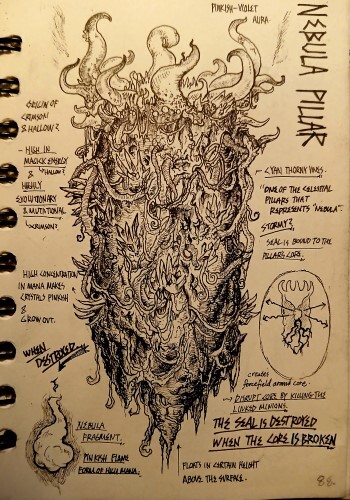 PINKISH-VIOLET
AURA.
NEBULA PILLAR
ORIGIN OF
CRIMSON
& HALLOW?
- HIGH IN
MAGICK ENERGY
↳ HALLOW?
&
HIGHLY
EVOLUTIONARY
& MUTATIONAL
↳ CRIMSON?
CYAN THORNY VINES.
"ONE OF THE CELESTIAL
PILLARS THAT
REPRESENTS "NEBULA".
STORMY?
SEAL IS BOUND TO THE
PILLARS CORE.
HIGH CONCENTRATION
IN MANA MAKES
CRYSTALS PINKISH
&
GROW OUT.
WHEN
DESTROYED
creates
forcefield around core.
→ DISRUPT CORE BY KILLING THE
LINKED MINIONS.
THE SEAL IS DESTROYED
WHEN THE CORE IS BROKEN
NEBULA
FRAGMENT.
PINKISH FLAME
FORM OF HIGH MANA.
FLOATS IN CERTAIN HEIGHT
ABOVE THE SURFACE.
88